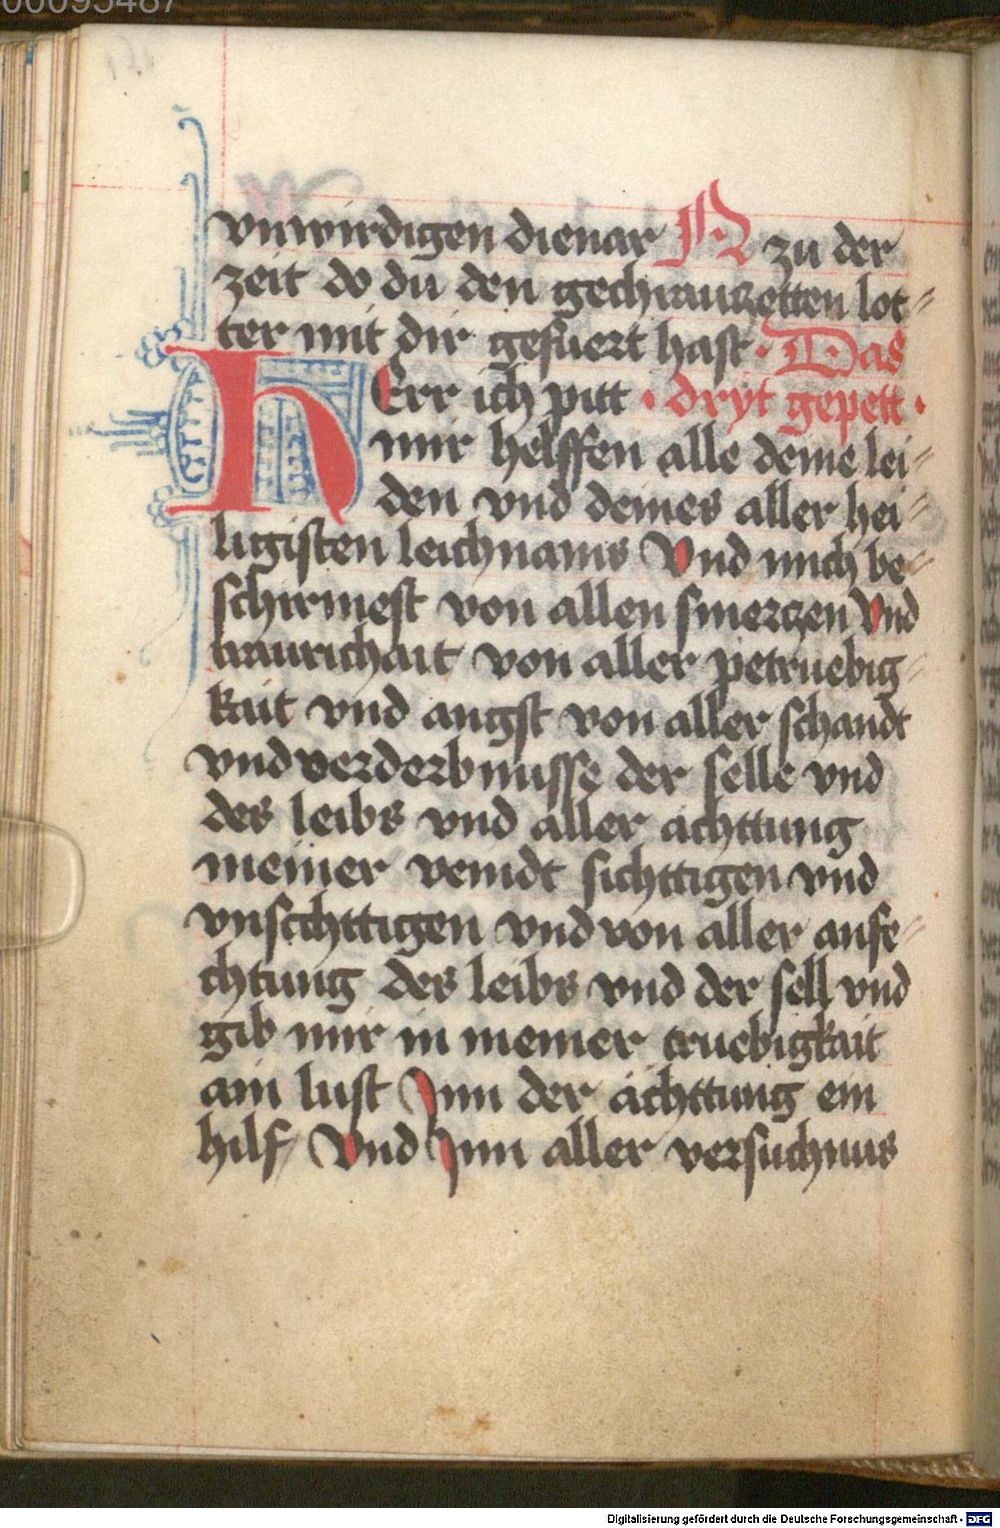 00095487
vnwirdigen dienar N zu der
zeit do du den gechrauczetten lot⸗
ter mit dir gefuert hast · Das
HErr ich pitt · dryt gepett ·
mir helffen alle deine lei⸗
den vnd deines aller hei⸗
ligisten leichnams Vnd mich be⸗
schirmest von allen smerczen Vnd
traurichait von aller petruebig⸗
kait vnd angst von aller schandt
vnd verderbnusse der selle vnd
des leibs vnd aller achttung
meiner veindt sichttigen vnd
vnsichttigen vnd von aller anfe⸗
chtung des leibs vnd der sell vnd
gib mir in meiner truebigkait
ain lust Inn der achttung ein
hilf Vnd Inn aller versuchnus
Digitalisierung gefördert durch die Deutsche Forschungsgemeinschaft - DFG